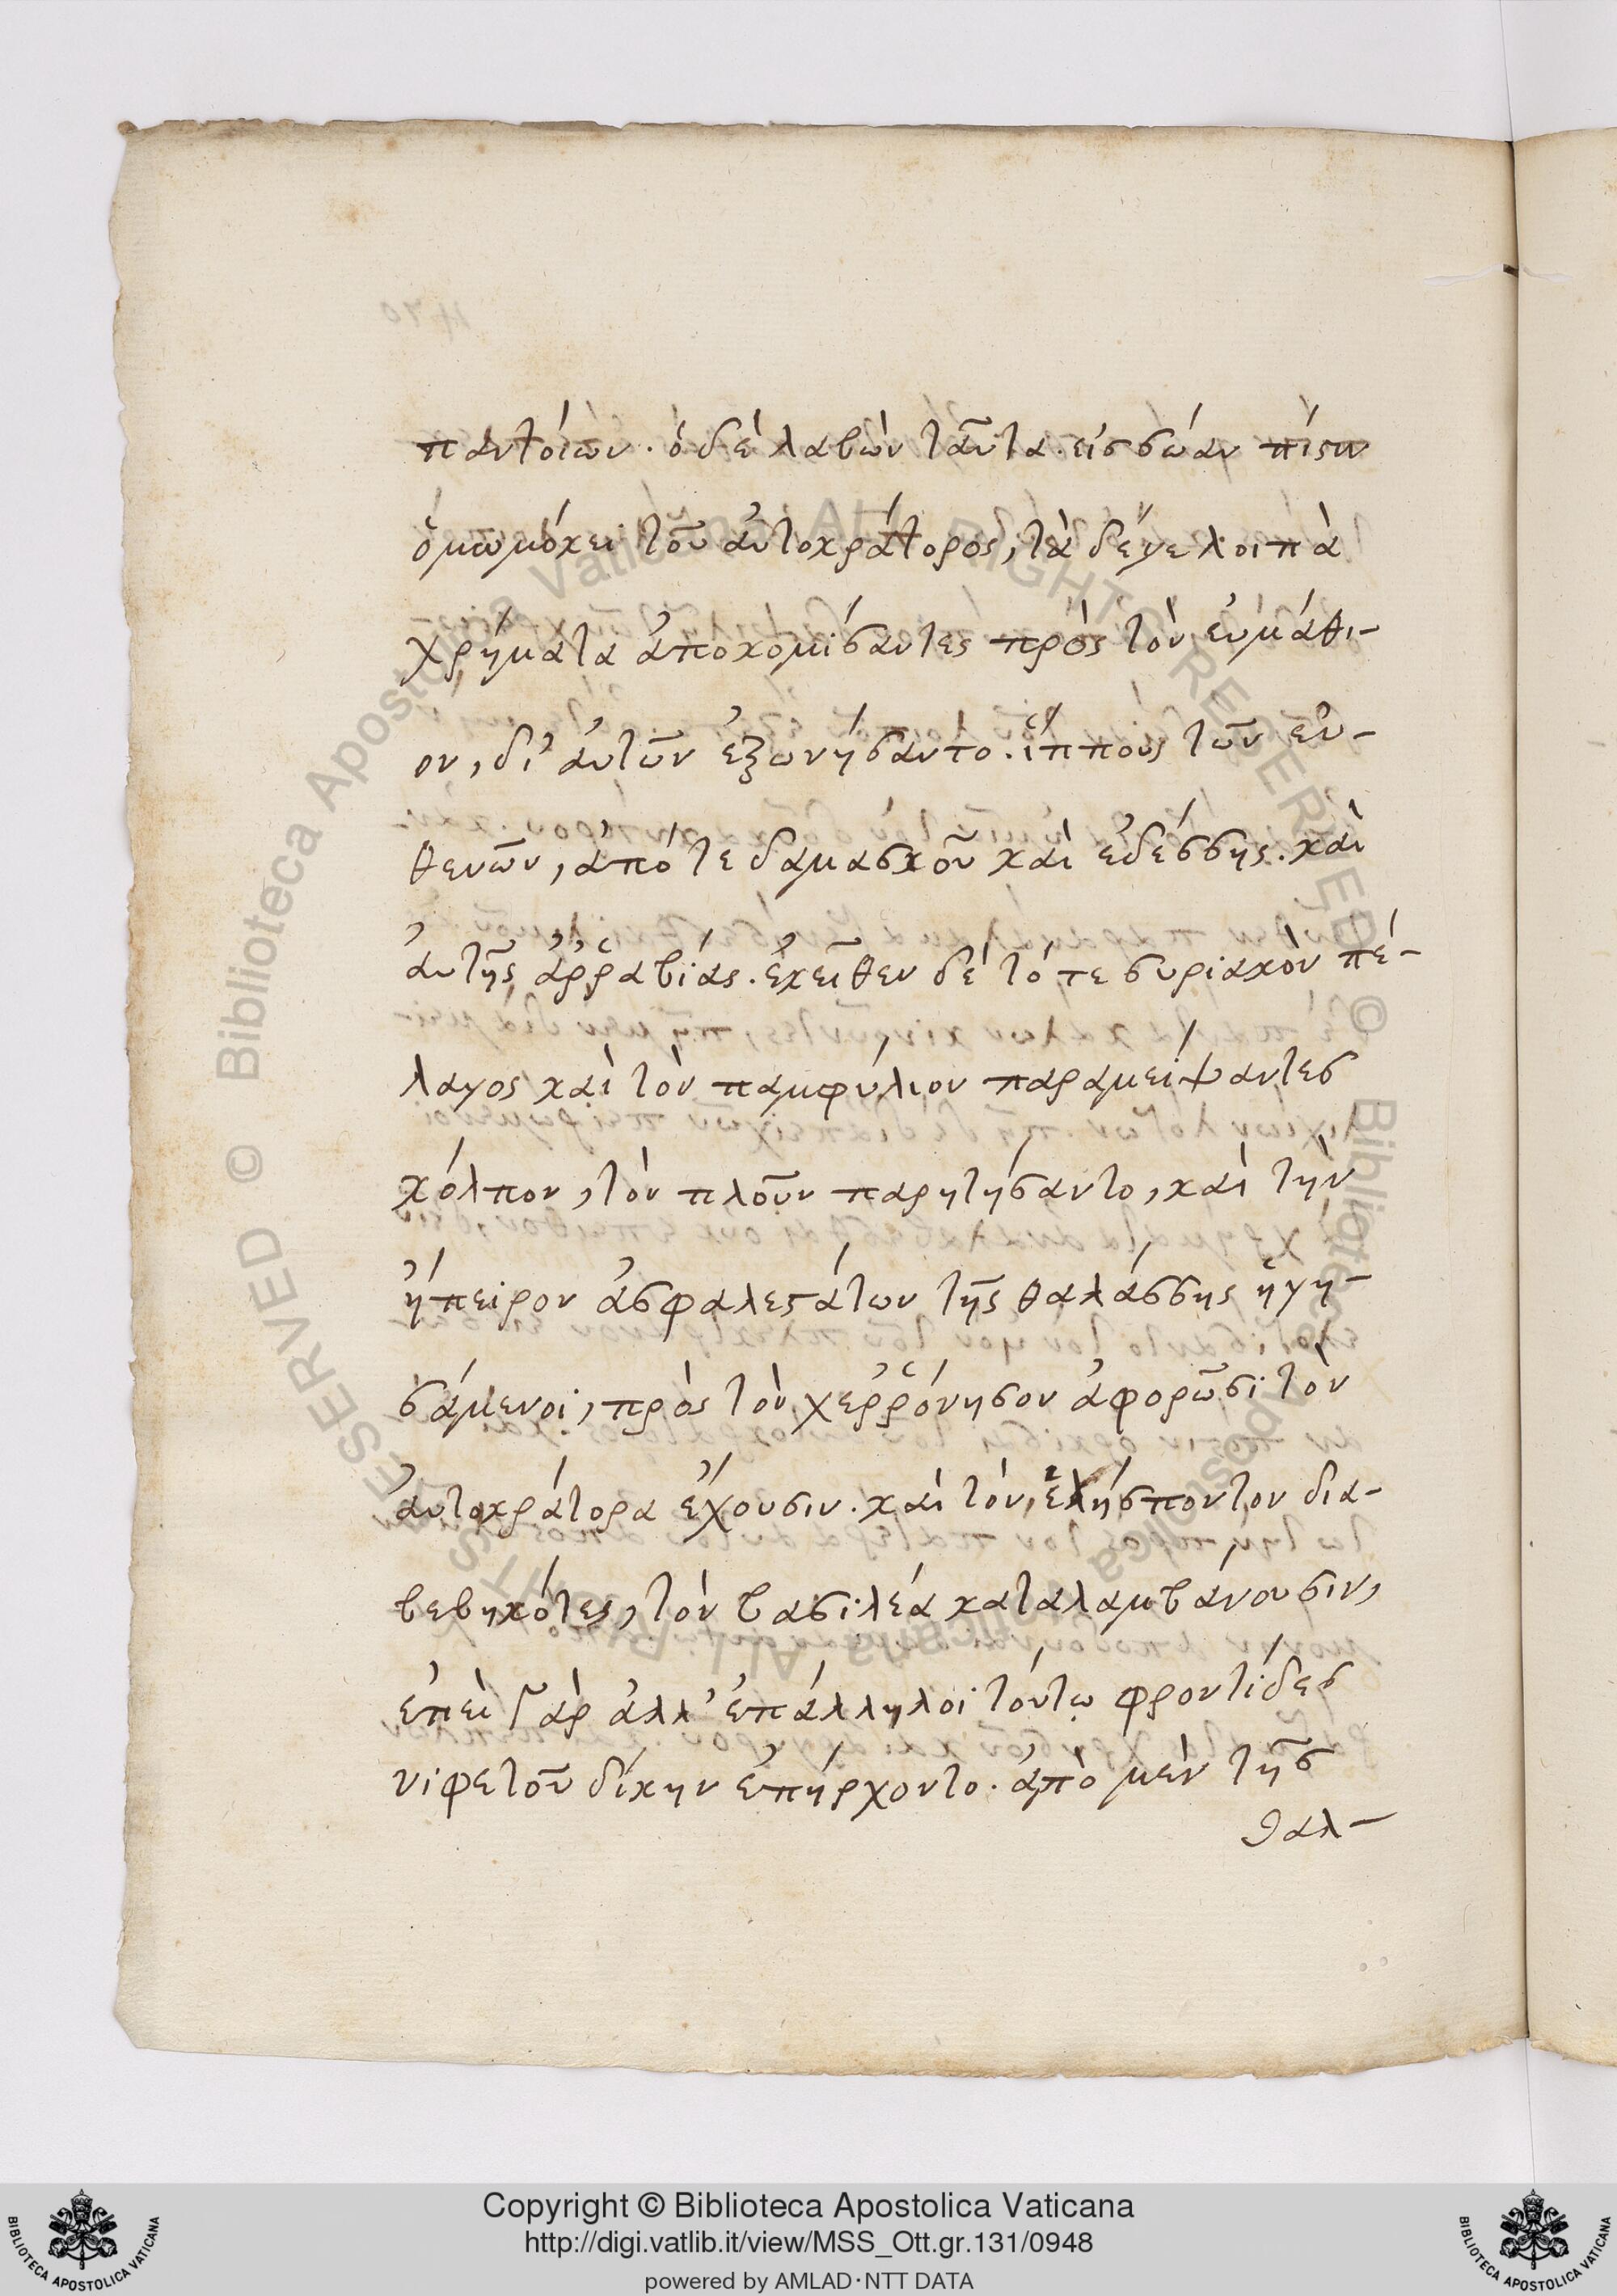 παντοίων. ὁ δὲ λαβὼν ταῦτα. εἰσσώαν πίστιν
ὀμωμόκει τοῦ αὐτοκράτορος, τὰ δέγε λοιπὰ
χρήματα ἀποκομίσαντες πρὸς τὸν εὐμάθι-
ον, δι' αὐτῶν ἐξωνήσαντο. ἵππους τῶν εὐ-
θενῶν, ἀπό τε δαμασκοῦ καὶ ἐδέσσης. καὶ
αὐτῆς ἀῤῥαβίας. ἐκεῖθεν δὲ τό τε συριακὸν πέ-
λαγος καὶ τὸν παμφύλιον παραμείψαντες
κόλπον, τὸν πλοῦν παρητήσαντο, καὶ τὴν
ἤπειρον ἀσφαλεστάτων τῆς θαλάσσης ἡγη-
σάμενοι, πρὸς τὸν χεῤῥόνησον ἀφορῶσι τὸν
αὐτοκράτορα ἔχουσιν. καὶ τὸν ἑλήσποντον δια-
βεβηκότες, τὸν βασιλέα καταλαμβάνουσιν,
ἐπεὶ γὰρ ἀλλ' ἐπάλληλοι τούτῳ φροντίδες
νιφετοῦ δίκην ἐπήρχοντο. ἀπὸ μὲν τῆς
θαλ-
Copyright © Biblioteca Apostolica Vaticana
http://digi.vatlib.it/view/MSS_Ott.gr.131/0948
powered by AMLAD·NTT DATA